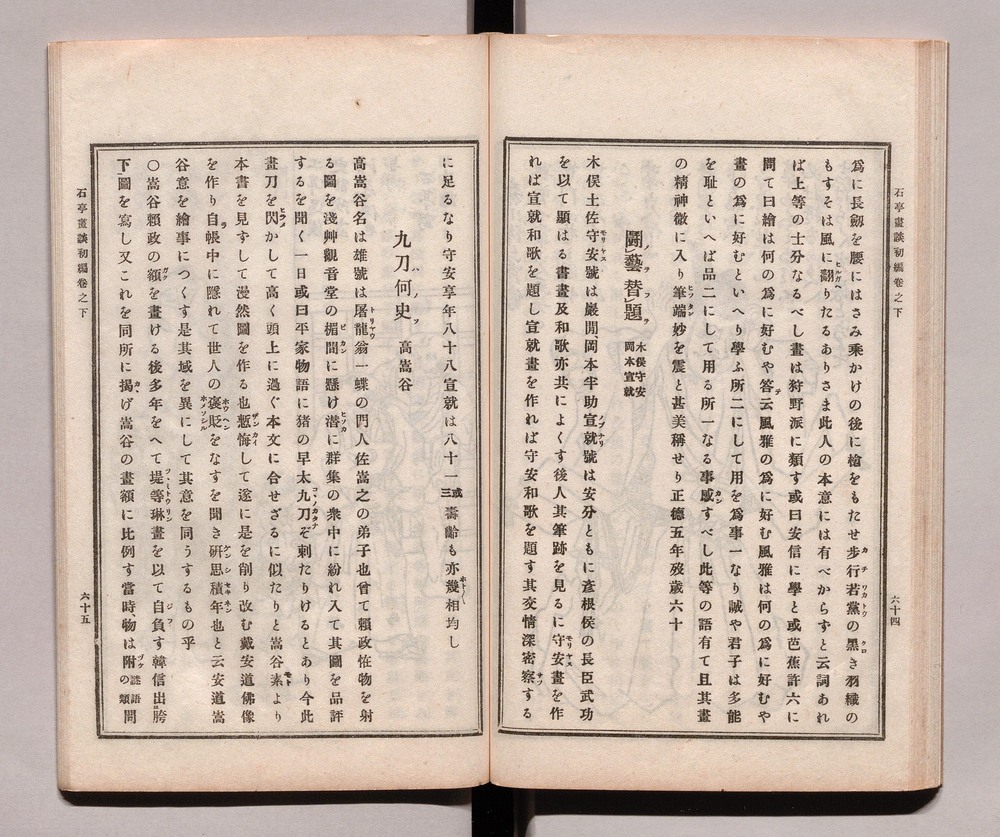 石亭畫談初編卷之下
六十四
爲に長劔を腰にはさみ乘かけの後に槍をもたせ歩行若黨の黒き羽織の
もすそは風に翻りたるありさま此人の本意には有べからすと云詞あれ
ば上等の士分なるべし畫は狩野派に類す或曰安信に學と或芭蕉許六に
問て曰繪は何の爲に好むや答云風雅の爲に好む風雅は何の爲に好むや
畫の爲に好むといへり學ふ所二にして用を爲事一なり誠や君子は多能
を耻といへば品二にして用る所一なる事感すべし此等の語有て且其畫
の精神微に入り筆端妙を震と甚美稱せり正德五年歿歳六十
鬪藝替題 木俣守安 岡本宣就
木俣土佐守安號は巖閒岡本半助宣就號は安分ともに彦根侯の長臣武功
を以て顯はる書畫及和歌亦共によくす後人其筆跡を見るに守安畫を作
れば宣就和歌を題し宣就畫を作れば守安和歌を題す其交情深密察する
に足るなり守安享年八十八宣就は八十一或三壽齡も亦幾相均し
九刀何史 高嵩谷
高嵩谷名は雄號は屠龍翁一蝶の門人佐嵩之の弟子也曾て賴政恠物を射
る圖を淺艸觀音堂の楣間に懸け潜に群集の衆中に紛れ入て其圖を品評
するを聞く一日或曰平家物語に猪の早太九刀ぞ刺たりけるとあり今此
畫刀を閃かして高く頭上に過ぐ本文に合せざるに似たりと嵩谷素より
本書を見すして漫然圖を作る也慙悔して遂に是を削り改む戴安道佛像
を作り自帳中に隱れて世人の褒貶をなすを聞き硏思積年也と云安道嵩
谷意を繪事につくす是其域を異にして其意を同うするもの乎
〇嵩谷賴政の額を畫ける後多年をへて堤等琳畫を以て自負す韓信出胯
下圖を寫し又これを同所に揭げ嵩谷の畫額に比例す當時物は附謎語の類間
石亭畫談初編卷之下
六十五